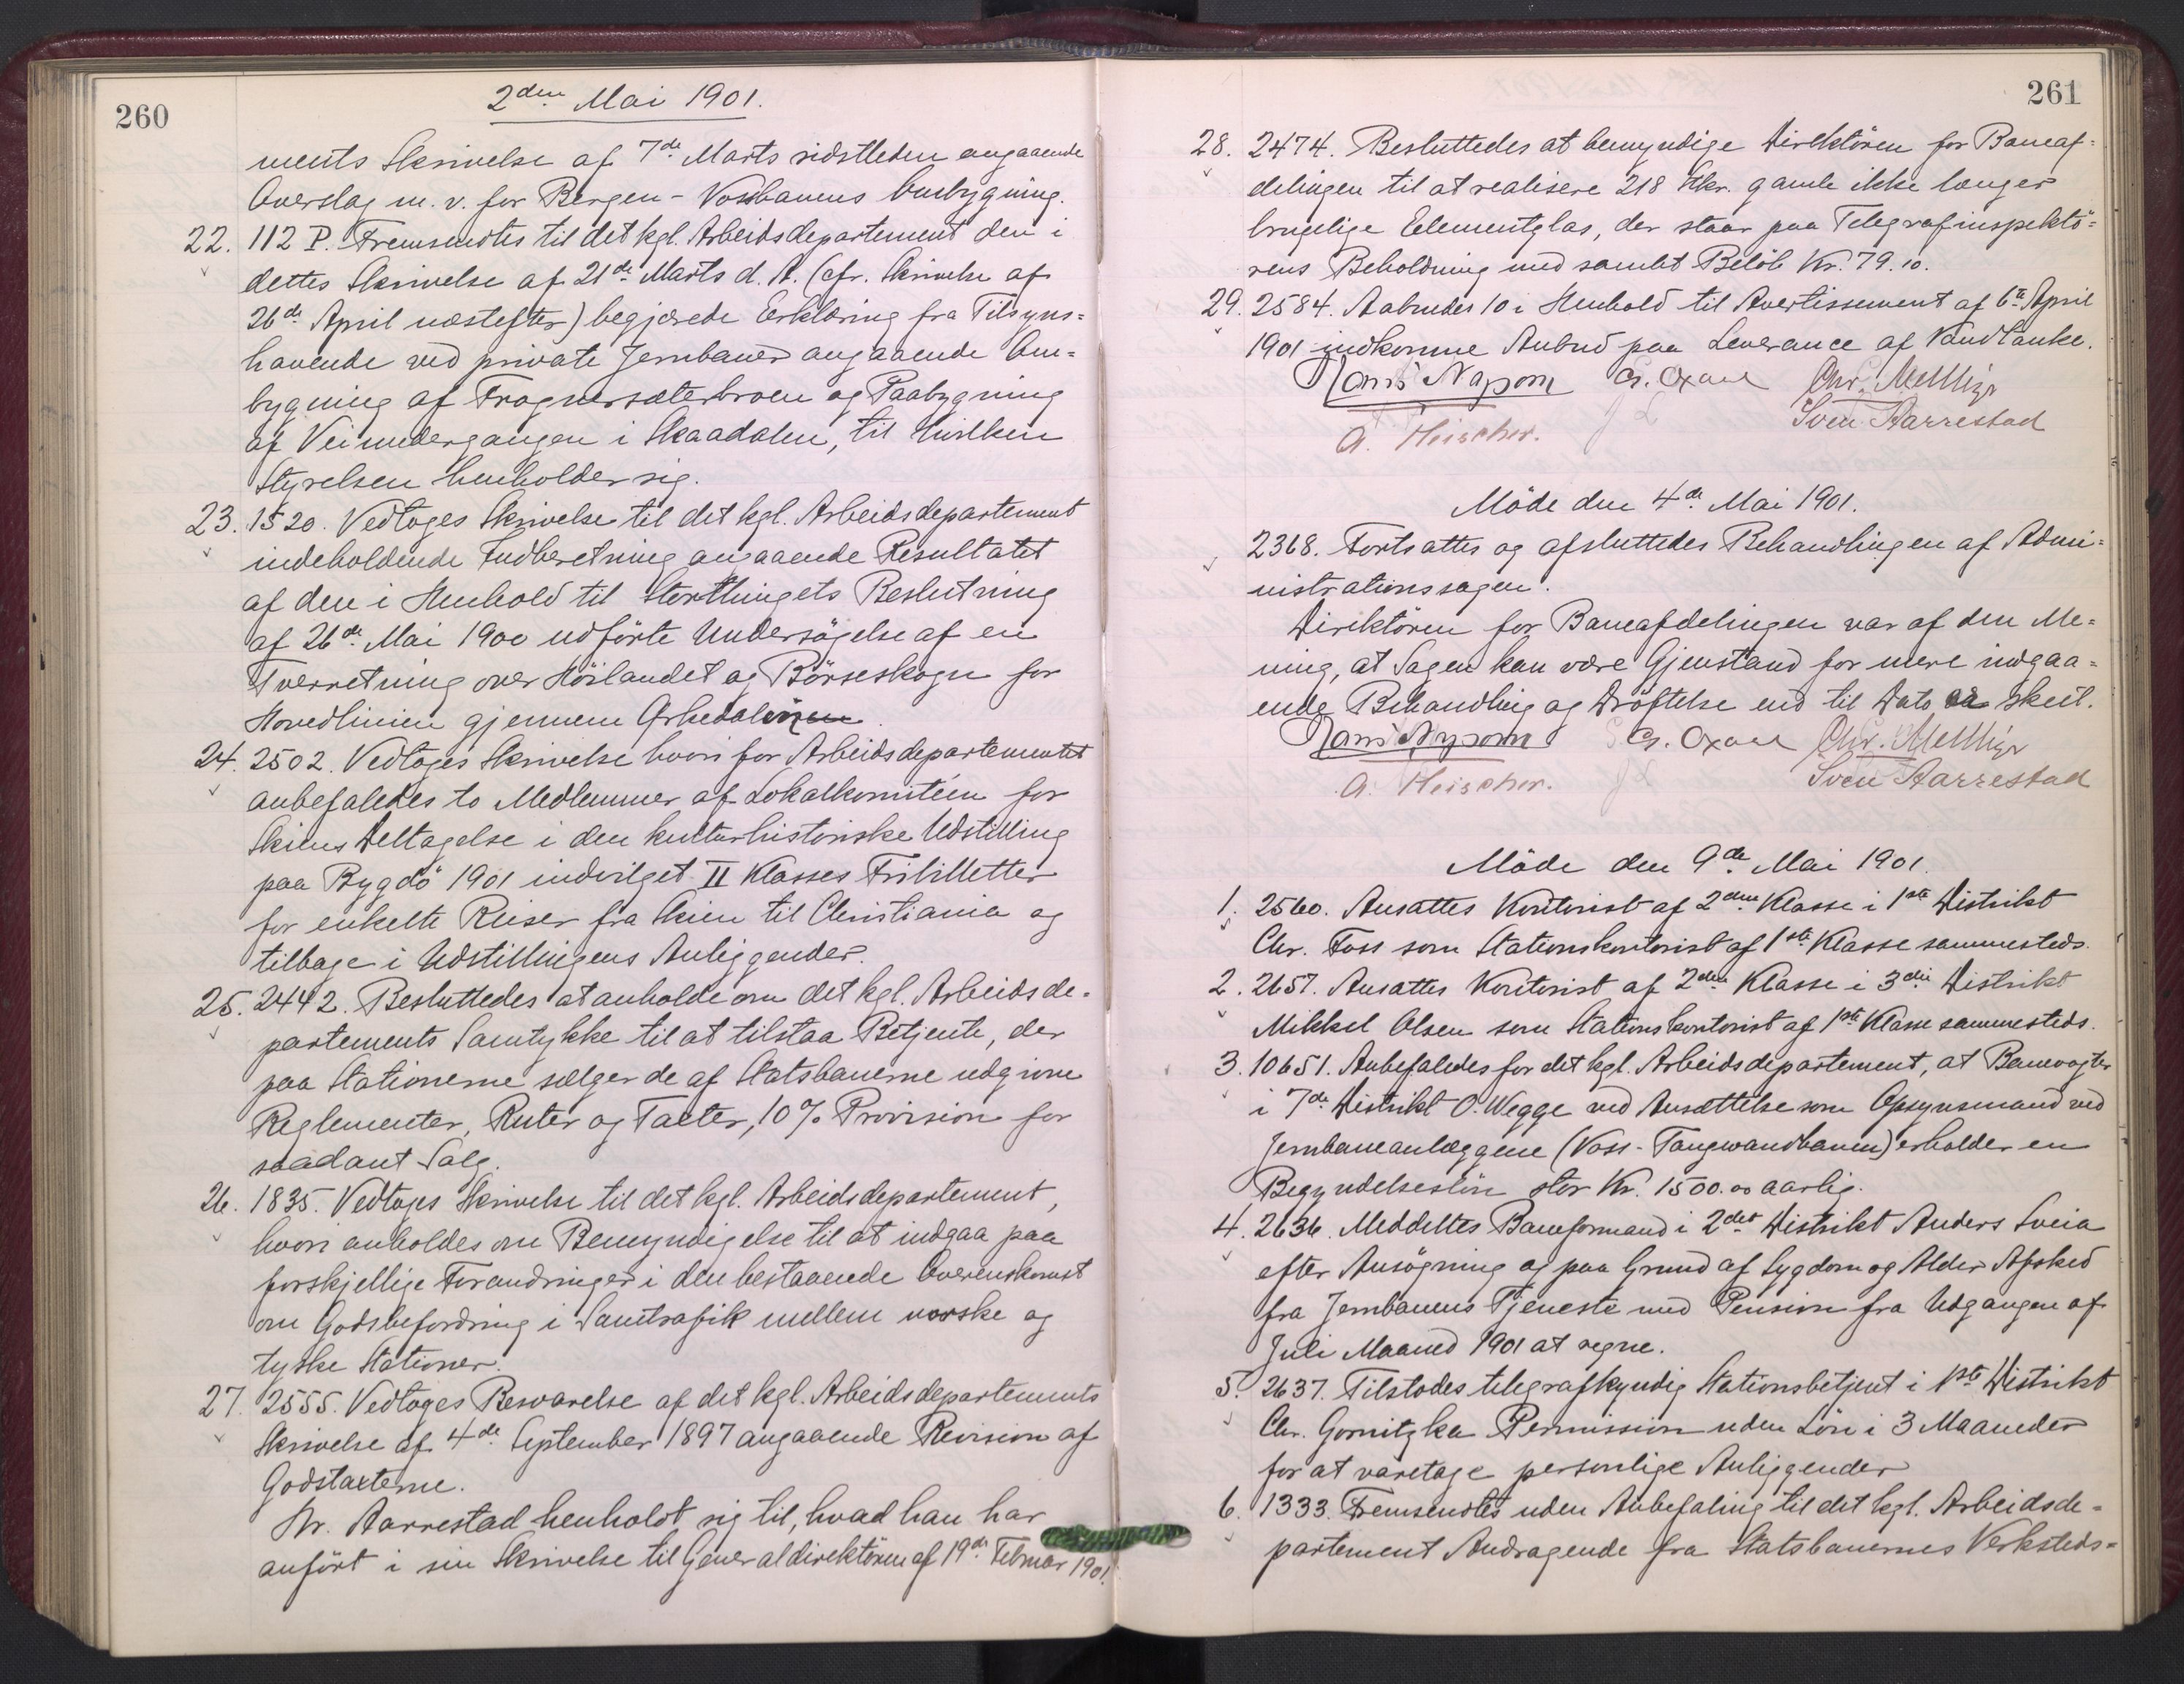 260
2den Mai 1901.
ments Skrivelse af 7de Marts sidstleden angaaende
Overslag m. v. for Bergen-Vossbanens Ombygning.
22. 112 P. Fremsendtes til det kgl. Arbeidsdepartement den i
dettes Skrivelse af 21de Marts d. A. (cfr. Skrivelse af
26de April næstefter) begjærede Erklæring fra Tilsyns=
havende ved private Jernbaner angaaende Om=
bygning af Frognersæterbroen og Paabygning
af Veiundergangen i Skaadalen, til hvilken
Styrelsen henholder sig.
23. 1520. Vedtoges Skrivelse til det kgl. Arbeidsdepartement
indeholdende Indberetning angaaende Resultatet
af den i Henhold til Storthingets Beslutning
af 26de Mai 1900 udførte Undersögelse af en
Tverretning over Höilandet og Börseskogn for
Hovedlinien gjennem Orkedalen.
24. 2502. Vedtoges Skrivelse hvori for Arbeidsdepartementet
anbefaledes to Medlemmer af Lokalkomitéen for
Skiens Deltagelse i den kulturhistoriske Udstilling
paa Bygdö 1901 indvilget II Klasses Fribilletter
for enkelte Reiser fra Skien til Christiania og
tilbage i Udstillingens Anliggender.
25. 2442. Besluttedes at anholde om det kgl. Arbeidsde=
partements Samtykke til at tilstaa Betjente, der
paa Stationerne sælger de af Statsbanerne udgivne
Reglementer, Ruter og Taxter, 10% Provision for
saadant Salg.
26. 1835. Vedtoges Skrivelse til det kgl. Arbeidsdepartement,
hvori anholdes om Bemyndigelse til at indgaa paa
forskjellige Forandringer i den bestaaende Overenskomst
om Godsbefordring i Samtrafik mellem norske og
tyske Stationer.
27. 2555. Vedtoges Besvarelse af det kgl. Arbeidsdepartements
Skrivelse af 4de September 1897 angaaende Revision af
Godstaxterne.
Hr. Aarrestad henholdt sig til, hvad han har
anfört i sin Skrivelse til Generaldirektören af 19de Februar 1901.
261
28. 2474. Besluttedes at bemyndige Direktören for Baneaf=
delingen til at realisere 218 Stkr. gamle ikke længer
brugelige Elementglas, der staar paa Telegrafinspektö=
rens Beholdning med samlet Belöb Kr. 79.10.
29. 2584. Aabnedes 10 i Henhold til Avertissement af 6te April
1901 indkomne Anbud paa Leverance af Vandtanke.
Hans Nysom G. Oxaal Chr.
A. Fleischer. Sven Aarrestad
Möde den 4de Mai 1901.
2368. Fortsattes og afsluttedes Behandlingen af Admi=
nistrationssagen.
Direktören for Baneafdelingen var af den Me=
ning, at Sagen kan være Gjenstand for mere indgaa=
ende Behandling og Dröftelse end til Dato er skeet.
Hans Nysom G. Oxaal Chr.
A. Fleischer. Sven Aarrestad
Möde den 9de Mai 1901.
1. 2560. Ansattes Kontorist af 2den Klasse i 1ste Distrikt
Chr. Foss som Stationskontorist af 1ste Klasse sammesteds.
2. 2657. Ansattes Kontorist af 2den Klasse i 3die Distrikt
Mikkel Olsen som Stationskontorist af 1ste Klasse sammesteds.
3. 10651. Anbefaledes for det kgl. Arbeidsdepartement, at Banevogter
i 7de Distrikt O. Wegge ved Ansættelse som Opsynsmand ved
Jernbaneanlæggene (Voss-Taugevandbanen) erholder en
Begyndelseslön stor Kr. 1500.00 aarlig.
4. 2636. Meddeltes Baneformand i 2det Distrikt Anders Sveia
efter Ansögning og paa Grund af Sygdom og Alder Afsked
fra Jernbanens Tjeneste med Pension fra Udgangen af
Juli Maaned 1901 at regne.
5. 2637. Tilstodes telegrafkyndig Stationsbetjent i 1ste Distrikt
Chr. Gornitzka Permission uden Lön i 3 Maaneder
for at varetage personlige Anliggender
6. 1333. Fremsendtes uden Anbefaling til det kgl. Arbeidsde=
partement Andragende fra Statsbanernes Verksteds=